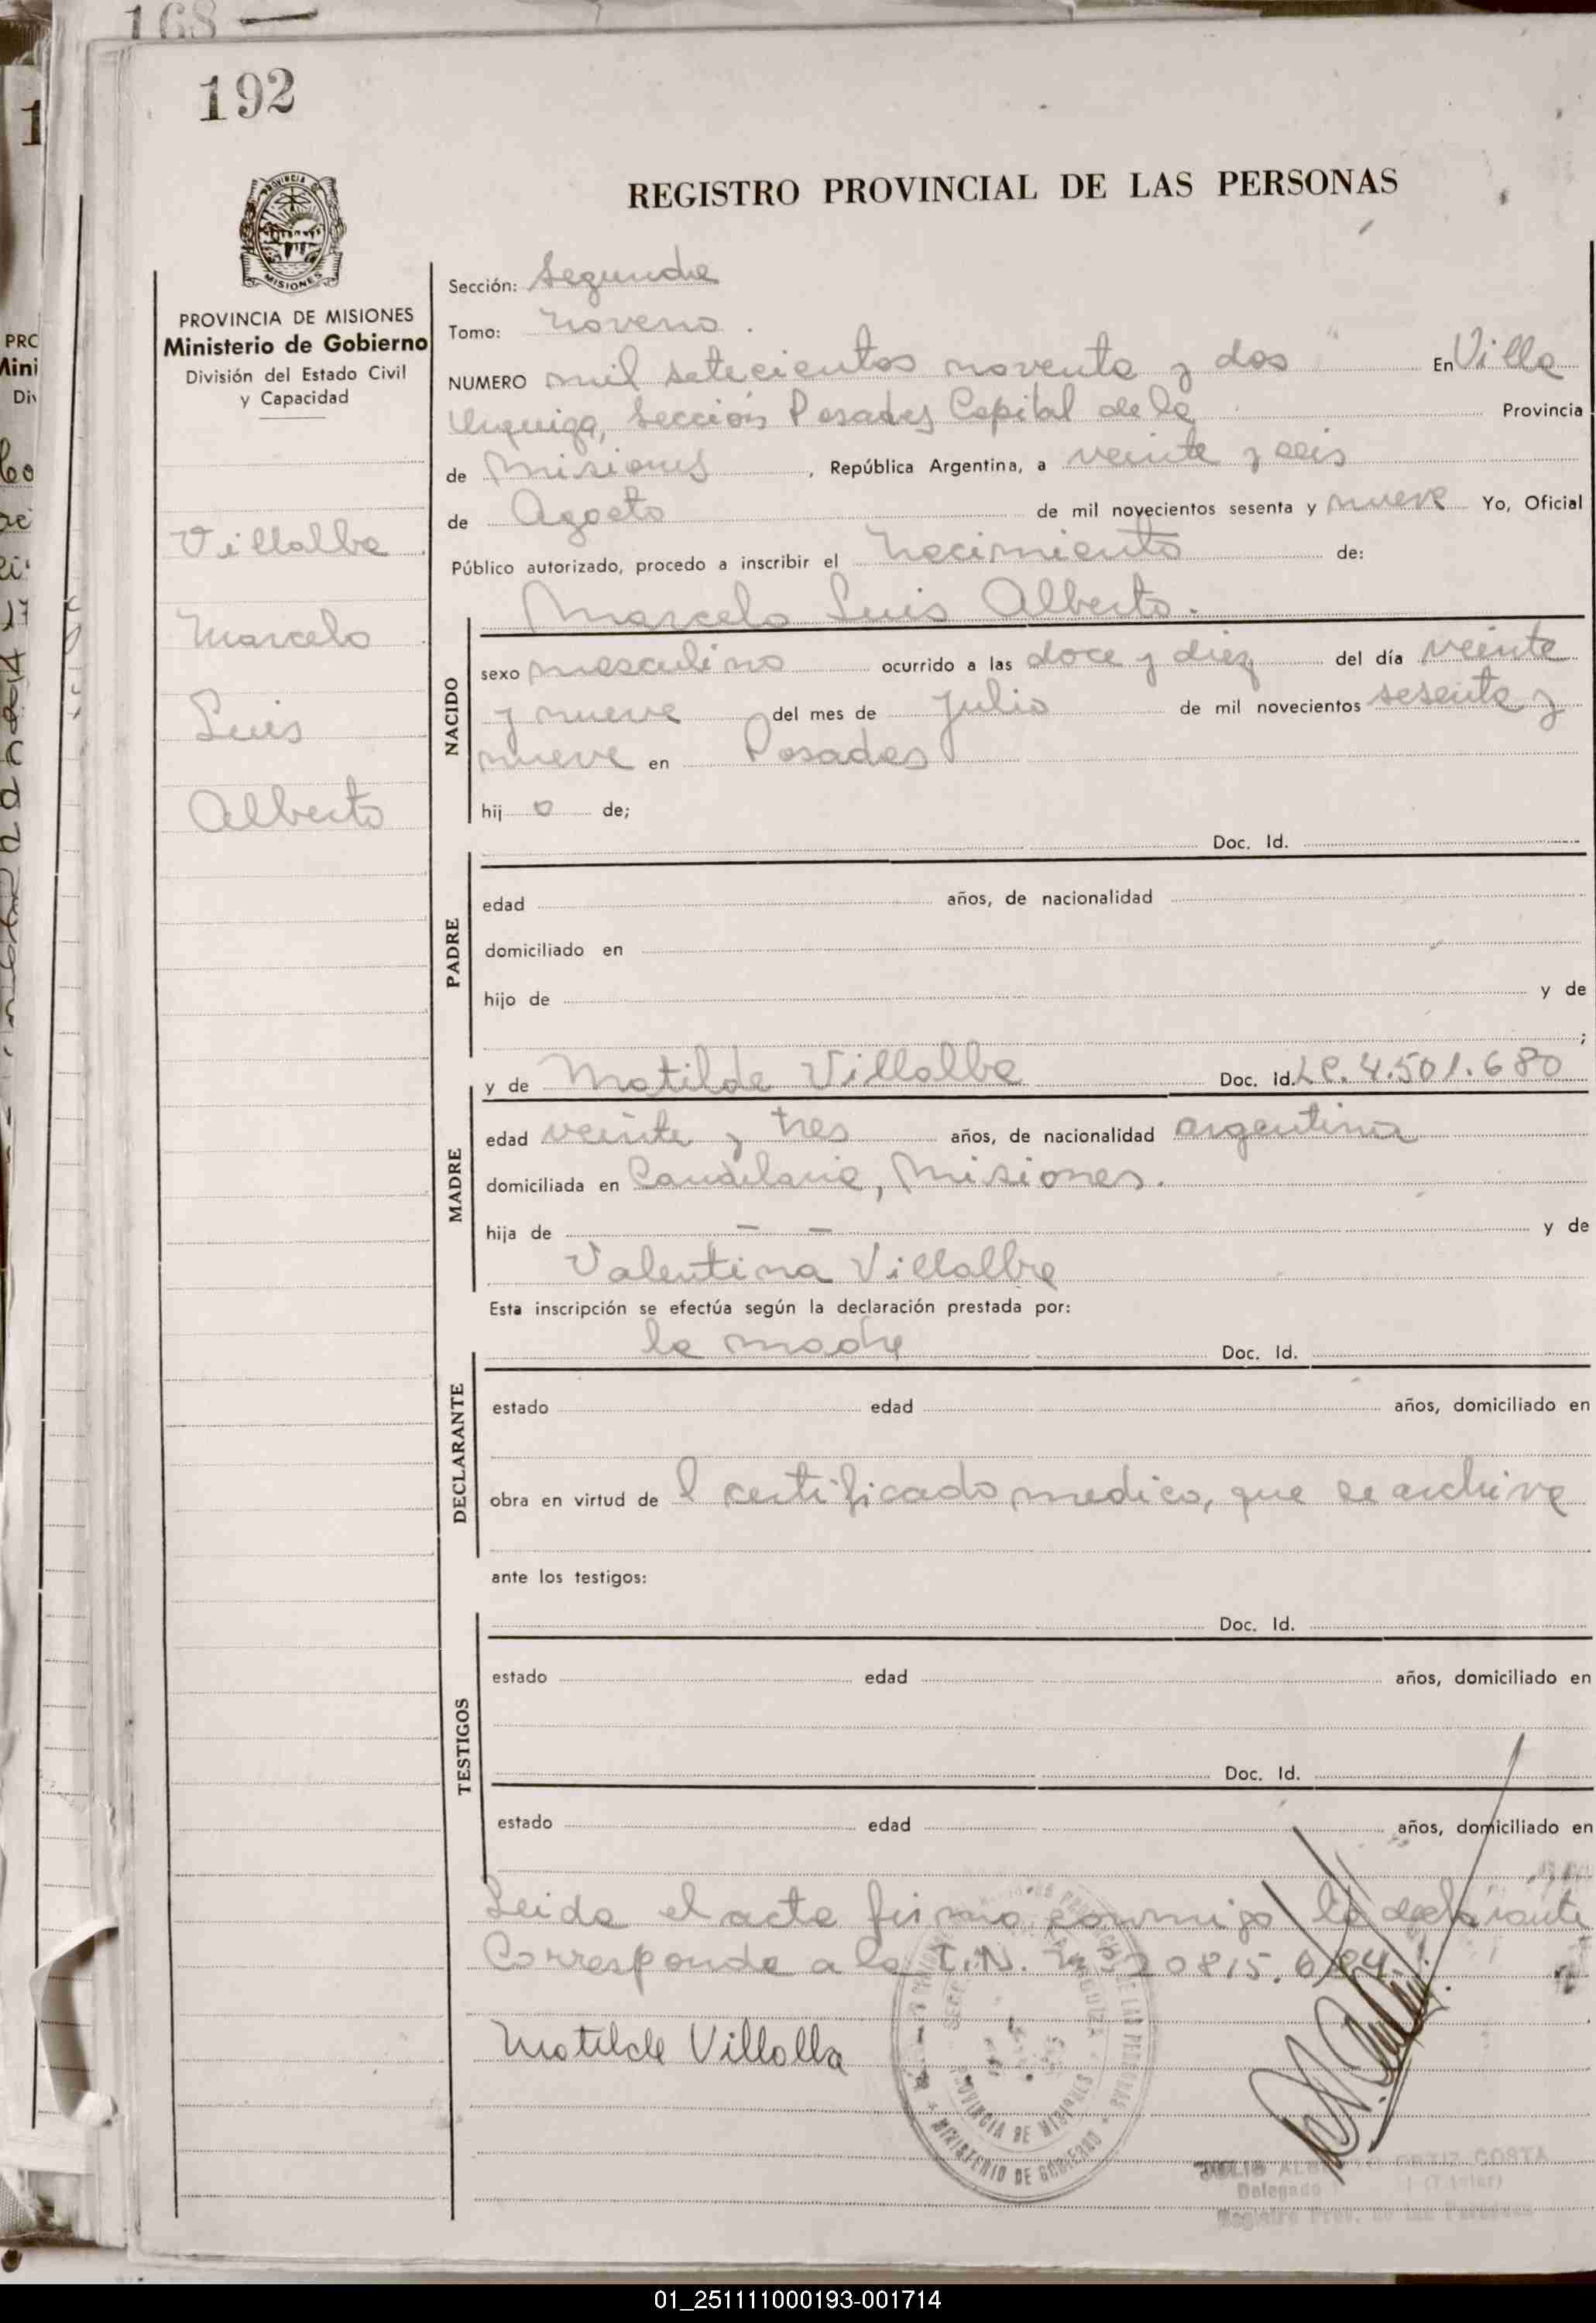 168 —
192
REGISTRO PROVINCIAL DE LAS PERSONAS
MISIONES
PROVINCIA DE MISIONES
Ministerio de Gobierno
División del Estado Civil
y Capacidad
Villalba
Marcelo
Luis
Alberto
Sección: Segunda
Tomo: noveno.
NUMERO mil setecientos noventa y dos En Villa
Urquiza, Sección Posadas Capital de la Provincia
de Misiones, República Argentina, a veinte y seis
de Agosto de mil novecientos sesenta y nueve Yo, Oficial
Público autorizado, procedo a inscribir el nacimiento de:
Marcelo Luis Alberto.
NACIDO
sexo masculino ocurrido a las doce y diez del día veinte
y nueve del mes de Julio de mil novecientos sesenta y
nueve en Posadas
hij o de;
Doc. Id.
PADRE
edad años, de nacionalidad
domiciliado en
hijo de y de
;
MADRE
y de Matilde Villalba Doc. Id. LC. 4.501.680
edad veinte y tres años, de nacionalidad argentina
domiciliada en Candelaria, Misiones.
hija de — — y de
Valentina Villalba
Esta inscripción se efectúa según la declaración prestada por:
DECLARANTE
la madre Doc. Id.
estado edad años, domiciliado en
obra en virtud de l certificado medico, que se archiva
ante los testigos:
TESTIGOS
Doc. Id.
estado edad años, domiciliado en
Doc. Id.
estado edad años, domiciliado en
Leida el acta firma conmigo la declarante
Corresponde a la I.N. 20815.
Matilde Villalba
PROVINCIA DE MISIONES
MINISTERIO DE GOBIERNO
JULIO ORTIZ COSTA
Delegado
Registro Prov. de las Personas
01_251111000193-001714